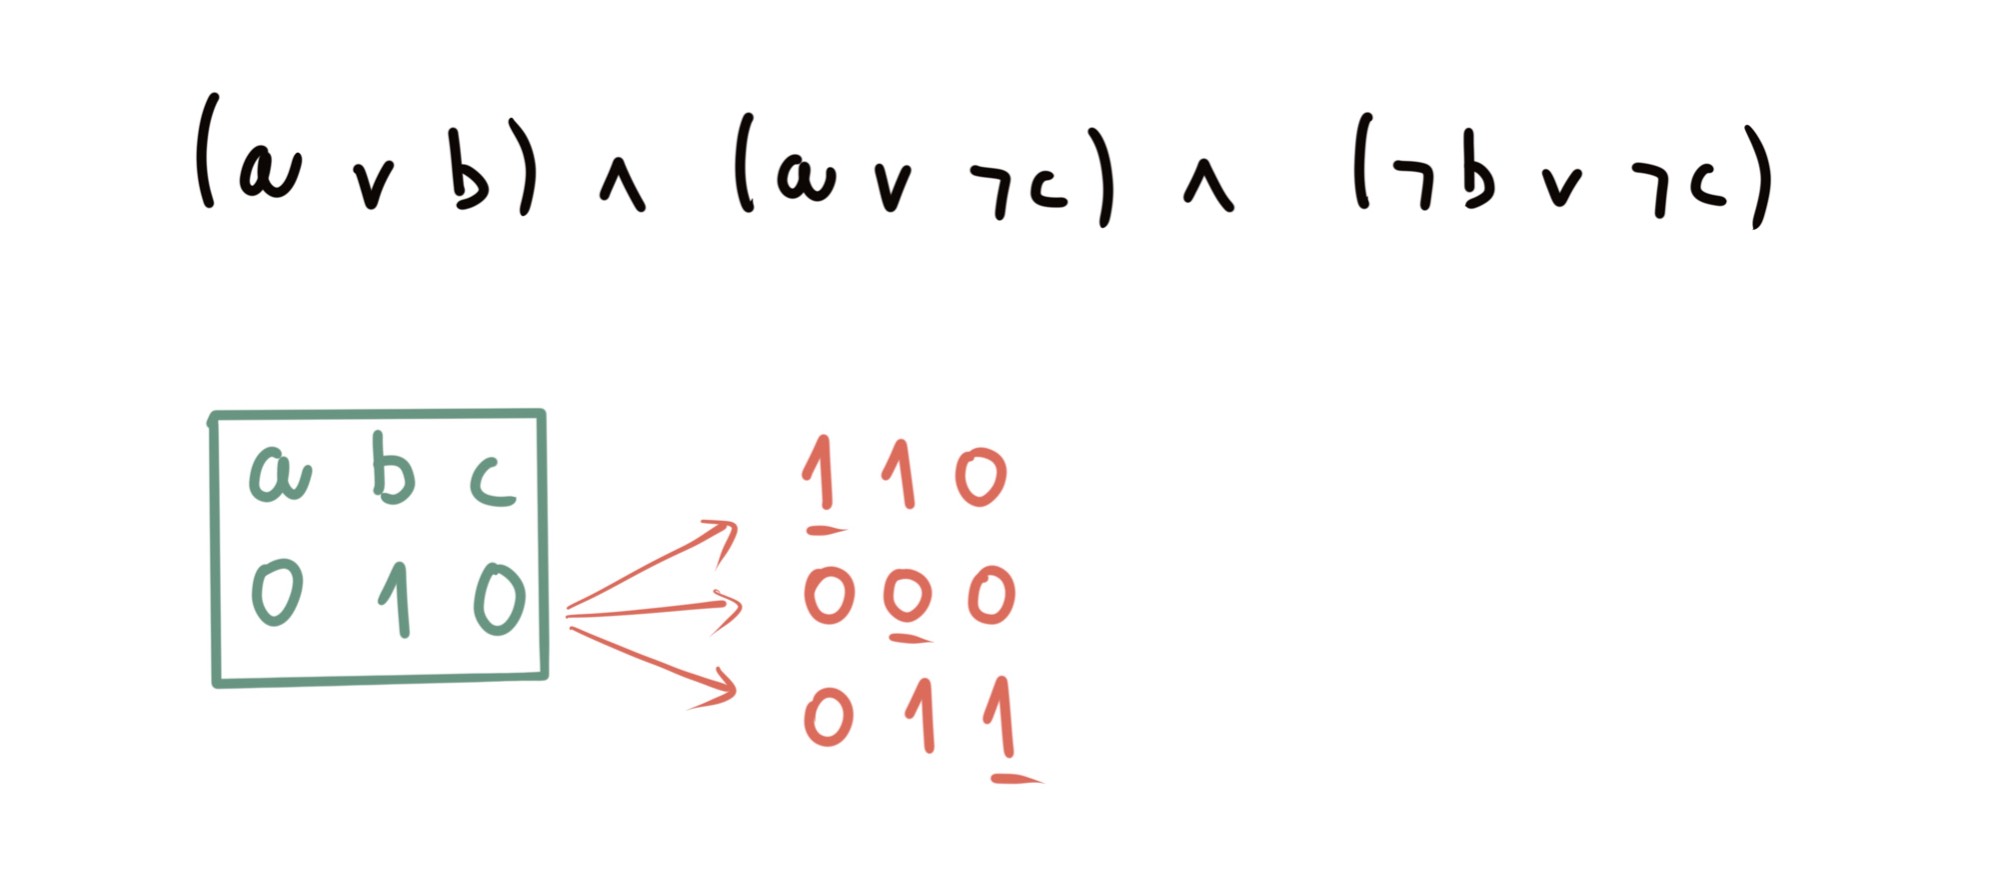 (a ∨ b) ∧ (a ∨ ¬c) ∧ (¬b ∨ ¬c)
a b c
0 1 0
1 1 0
0 0 0
0 1 1